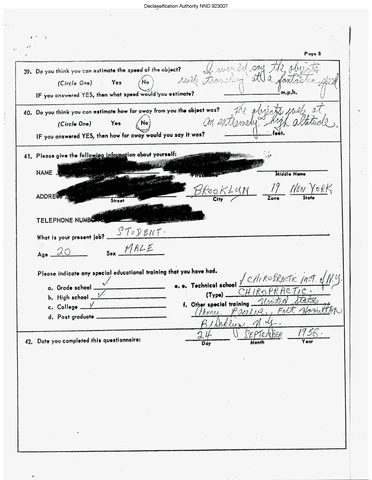 Declassification Authority NND 923007
Page 8
39. Do you think you can estimate the speed of the object?
(Circle One) Yes No
IF you answered YES, then what speed would you estimate? m.p.h.
I would say the objects
were traveling at a fantastic speed
40. Do you think you can estimate how far away from you the object was?
(Circle One) Yes No
IF you answered YES, then how far away would you say it was? feet.
The objects were at
an extremely high altitude
41. Please give the following information about yourself:
NAME
Middle Name
ADDRESS BROOKLYN 19 NEW YORK
Street City Zone State
TELEPHONE NUMBER
What is your present job? STUDENT.
Age 20 Sex MALE
Please indicate any special educational training that you have had.
a. Grade school
b. High school
c. College
d. Post graduate
e. Technical school CHIROPRACTIC INST. of N.Y.
(Type) CHIROPRACTIC.
f. Other special training United States
Fort Hamilton
Brooklyn N.Y.
42. Date you completed this questionnaire: 24 SEPTEMBER 1956
Day Month Year